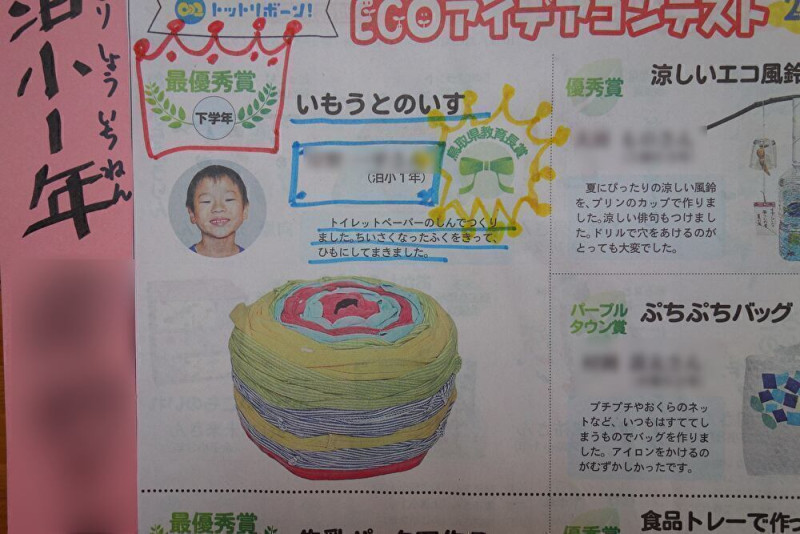 トットリボーン!
ECOアイデアコンテスト
泊小1年
りしょういちねん
最優秀賞
下学年
いもうとのいす
(泊小1年)
鳥取県教育長賞
トイレットペーパーのしんでつくり
ました。ちいさくなったふくをきって、
ひもにしてまきました。
優秀賞
涼しいエコ風鈴
夏にぴったりの涼しい風鈴
を、プリンのカップで作りま
した。涼しい俳句もつけまし
た。ドリルで穴をあけるのが
とっても大変でした。
パープル
タウン賞
ぷちぷちバッグ
プチプチやおくらのネッ
トなど、いつもはすててし
まうものでバッグを作りま
した。アイロンをかけるの
がむずかしかったです。
最優秀賞
優秀賞
食品トレーで作っ